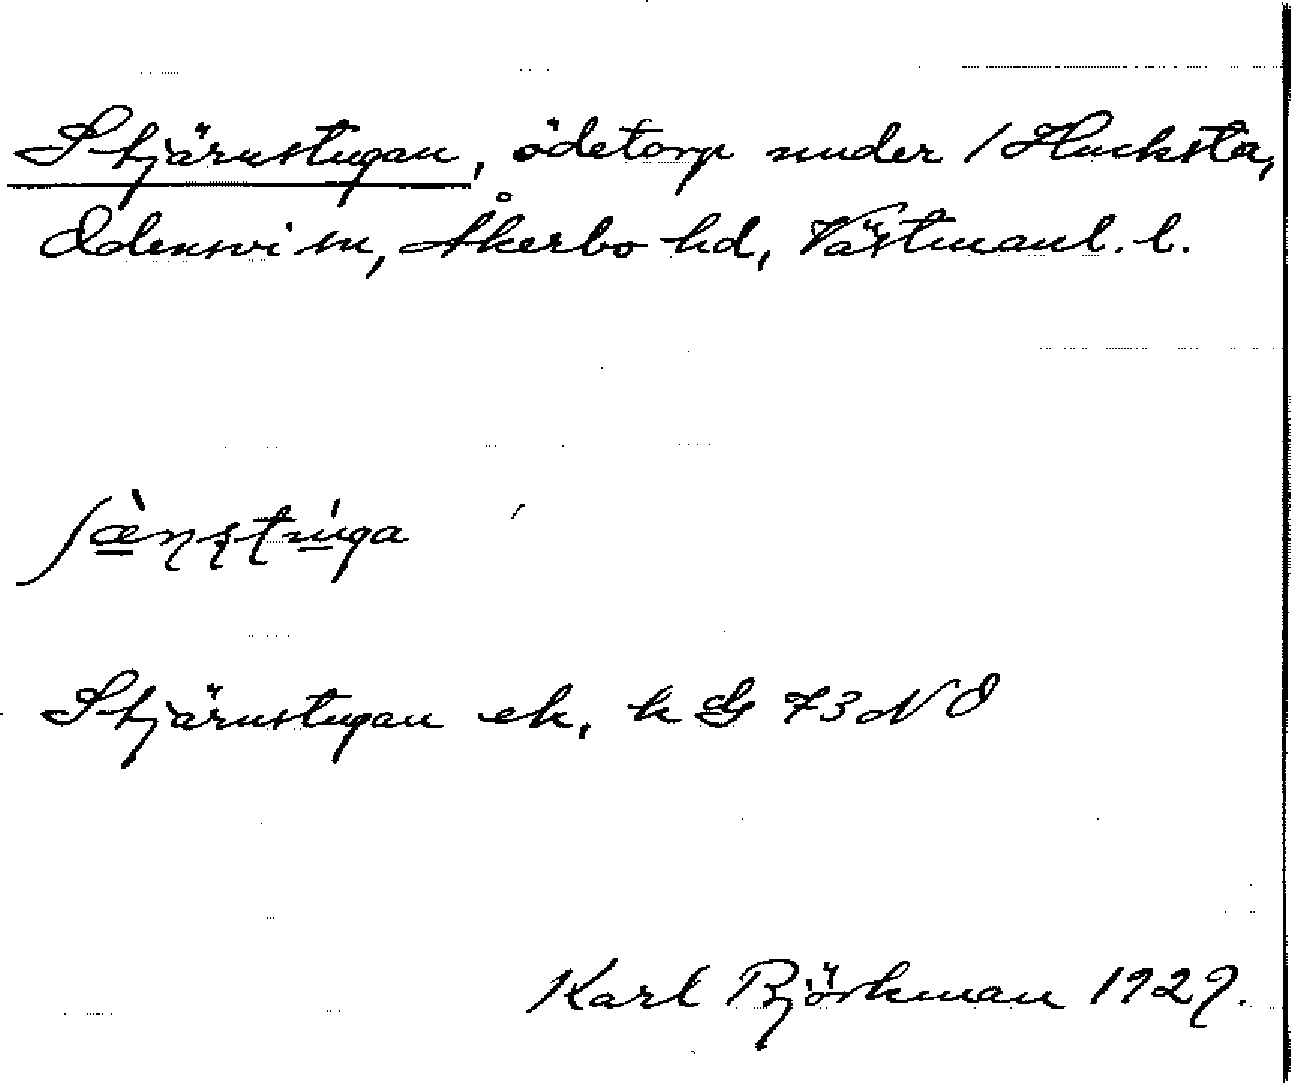 Stjärnstugan, ödetorp under / Hucksta,
Odensvi sn, Åkerbo hd, Västmanl. l.
Stjärnstugan ek. k G 73 N O
Karl Björkman 1929.